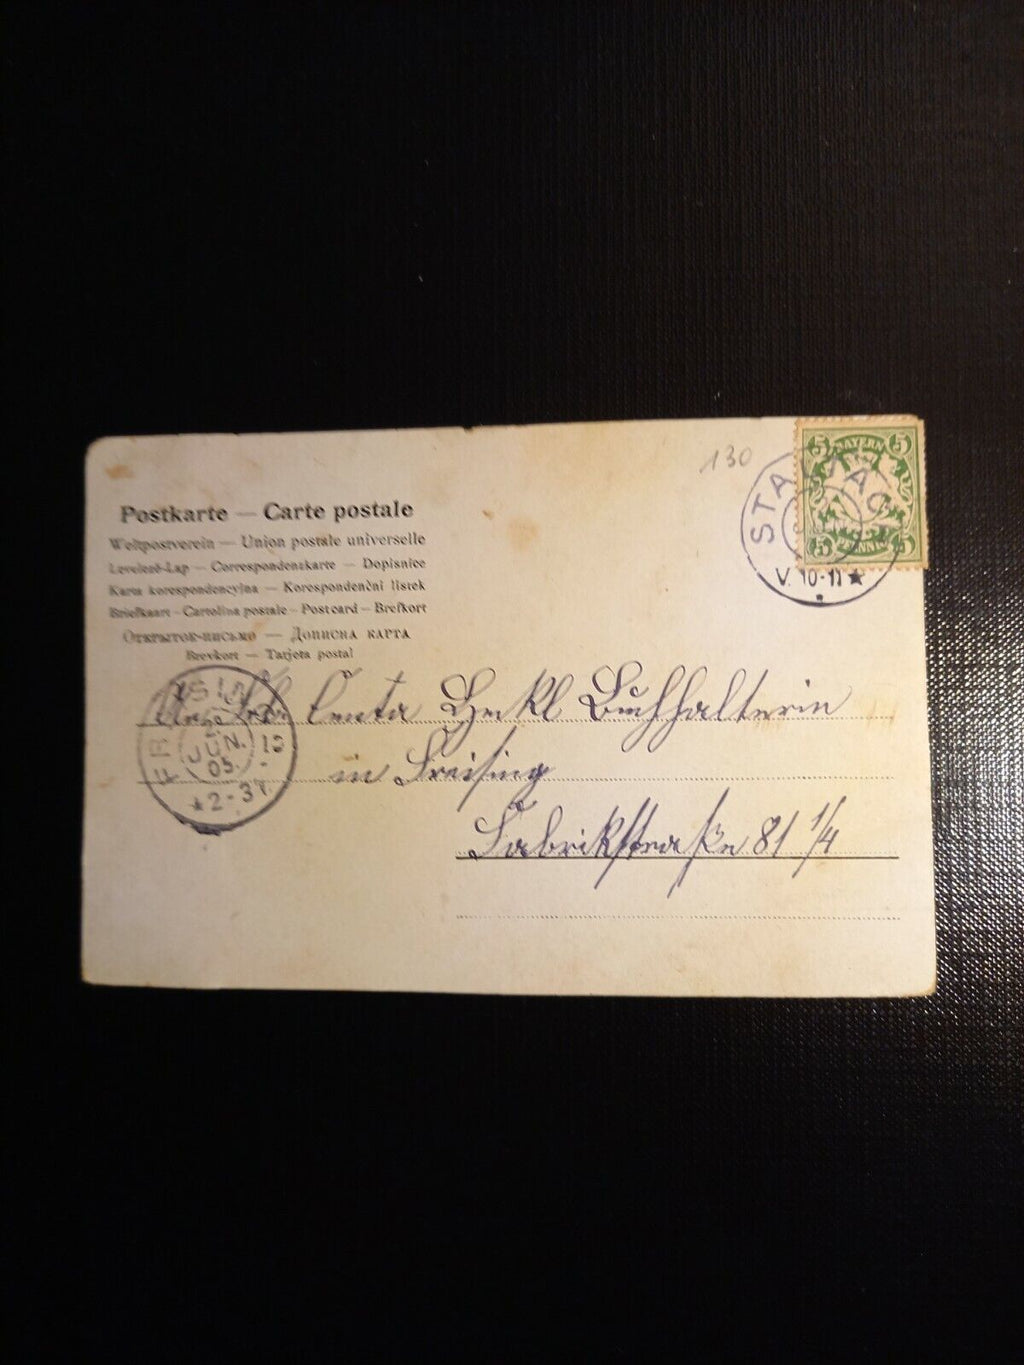 130
5 BAYERN 5
5 PFENNIG 5
V. 10-11 ★
Postkarte — Carte postale
Weltpostverein — Union postale universelle
Levelező-Lap — Correspondenzkarte — Dopisnice
Karta korespondencyjna — Korespondenční listek
Briefkaart - Cartolina postale - Postcard - Brefkort
Открытое-письмо — Дописна карта
Brevkort — Tarjeta postal
Centa Buchhalterin
in Freising
Fabrikstraße 81 1/4
FREISING
JUN.
05.
★ 2-3